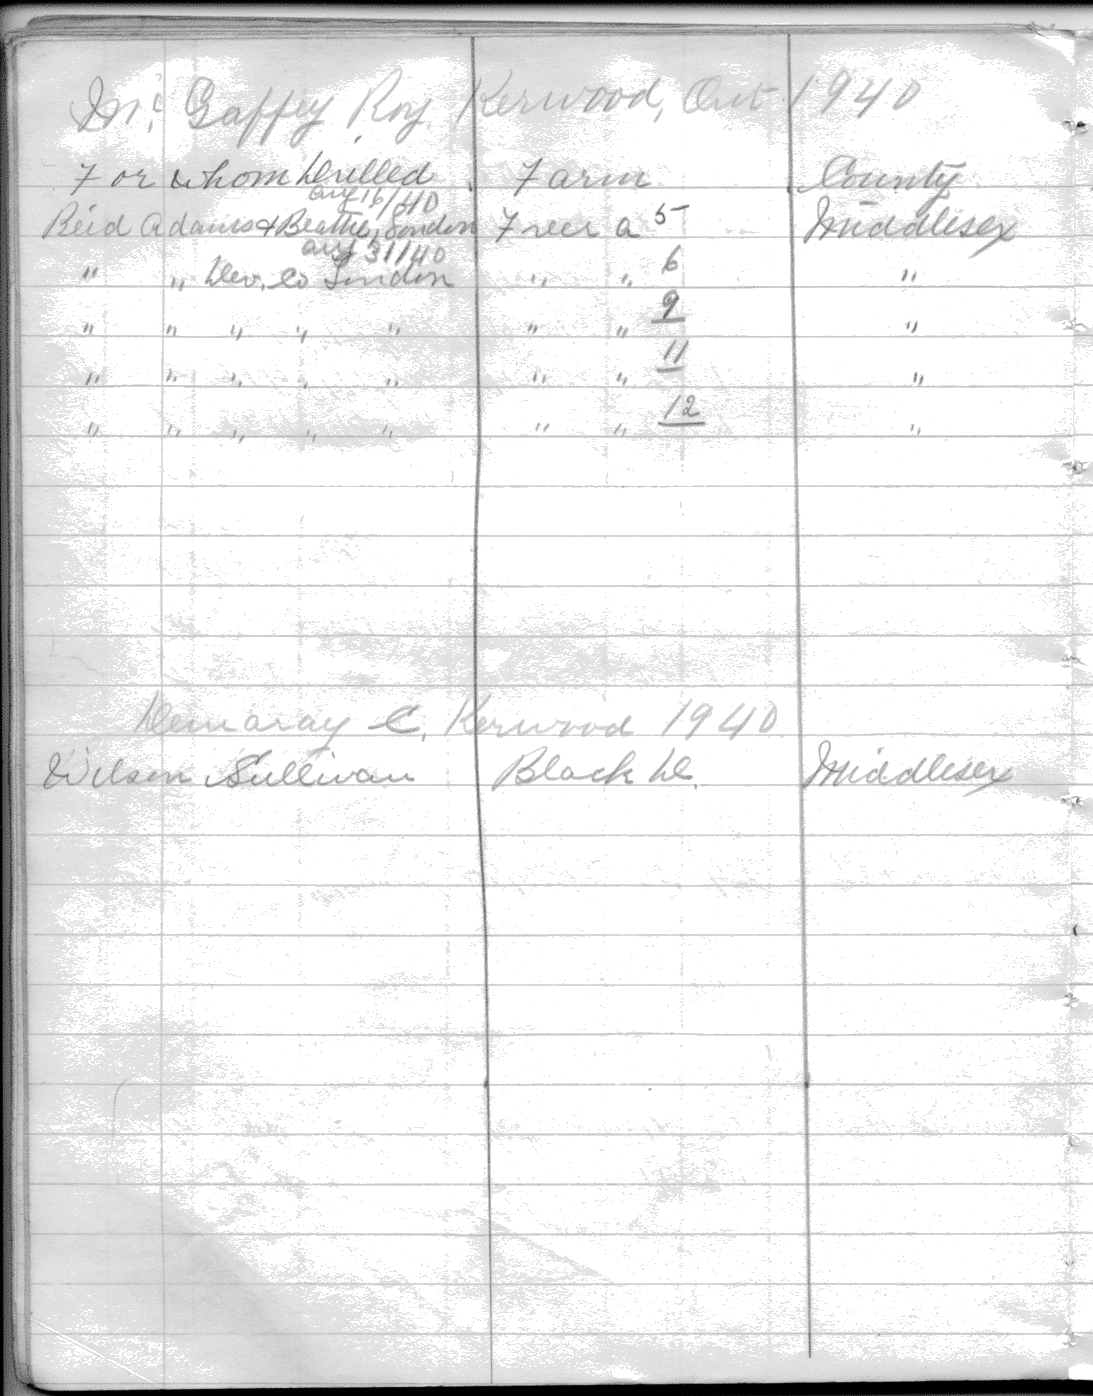 Mc Gaffey Roy Kerwood, Ont 1940
For whom Drilled Farm County
Aug 16/40
Reid Adams & Beattie, London Freer A 5 Middlesex
Aug 31/40
" " Dev. Co London " " 6 "
" " " " " " " 9 "
" " " " " " " 11 "
" " " " " " " 12 "
Demaray C. Kerwood 1940
Wilson Sullivan Black D. Middlesex